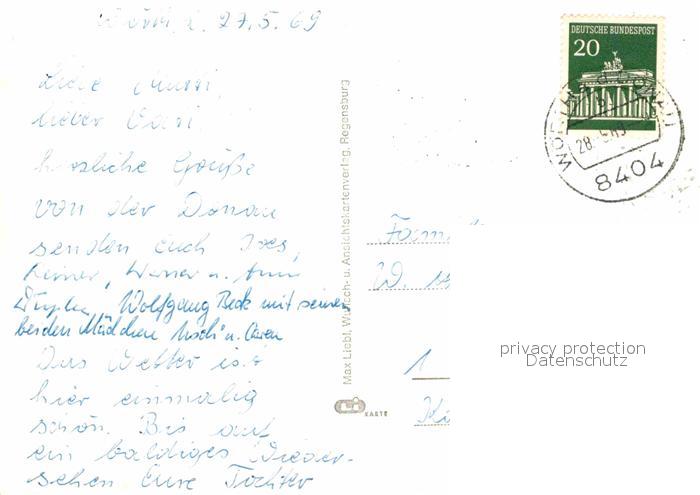 27.5.69
Liebe Mutti,
lieber Vati,
herzliche Grüße
von der Donau
senden Euch
Reiner, Werner u.
Wolfgang Beck mit seinen
beiden Mädchen Uschi u.
Das Wetter ist
hier einmalig
schön. Bis auf
ein baldiges Wieder-
sehen Eure Tochter
Max Liebl, Wunsch- u. Ansichtskartenverlag, Regensburg
KARTE
DEUTSCHE BUNDESPOST
20
28.-5.69
8404
Fam
W.
1
Ki
privacy protection
Datenschutz